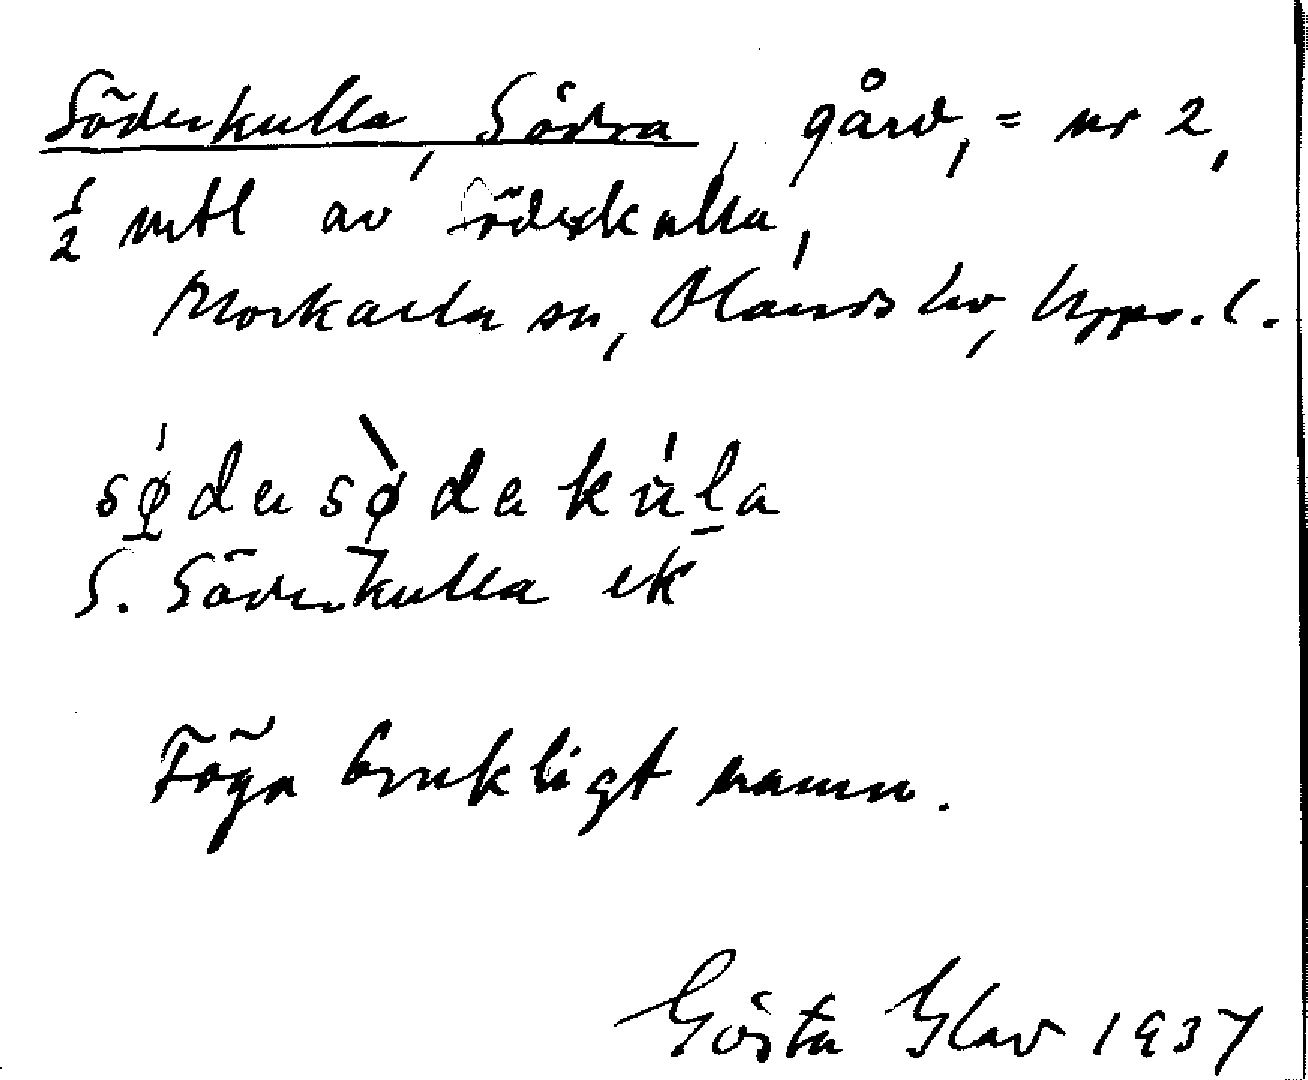 Söderkulla, Södra, gård, = nr 2,
1/2 mtl av Söderkulla,
Morkarla sn, Olands hd, Upps. l.
sø̀da sø̀dakúla
S. Söderkulla ek
Föga brukligt namn.
Gösta Glav 1937